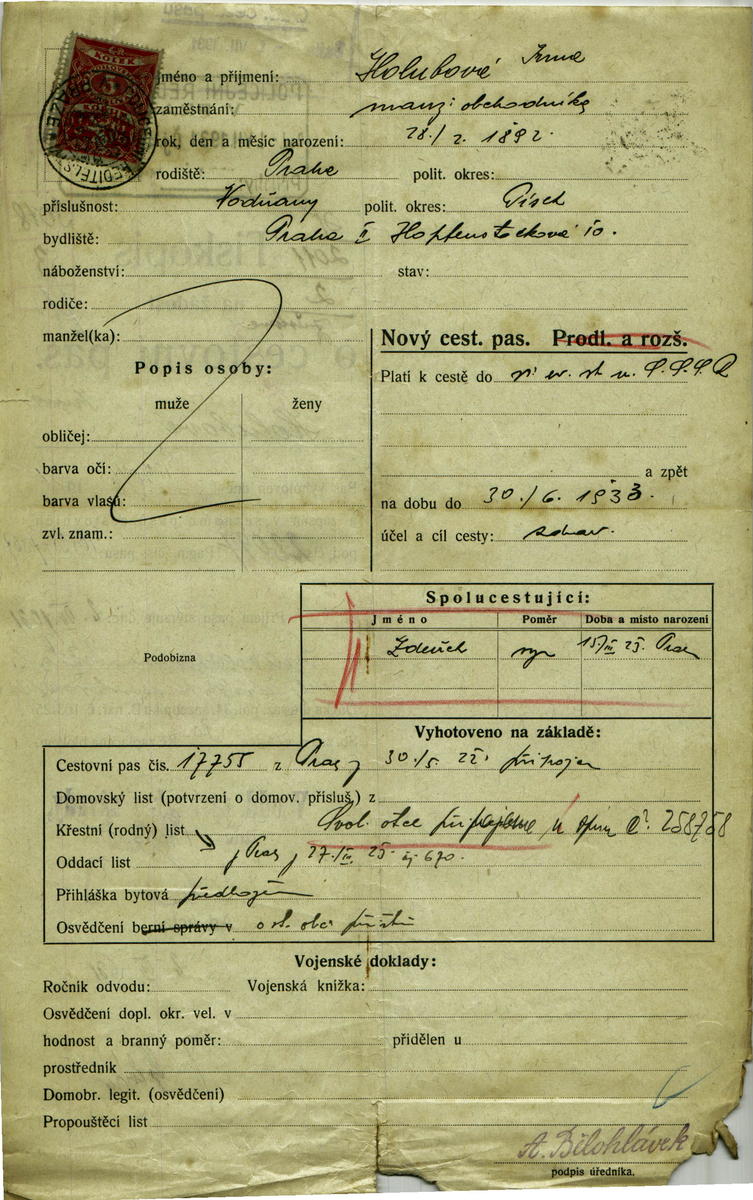 jméno a příjmení: Holubová Irma
zaměstnání: manž. obchodníka
rok, den a měsíc narození: 28./2. 1892.
rodiště: Praha polit. okres:
příslušnost: Vodňany polit. okres: Písek
bydliště: Praha
náboženství: stav:
rodiče:
manžel(ka):
Nový cest. pas. Prodl. a rozš.
Popis osoby:
muže ženy
obličej:
barva očí:
barva vlasů:
zvl. znam.:
Platí k cestě do
a zpět
na dobu do 30./6. 1933.
účel a cíl cesty:
Podobizna
Spolucestující:
Jméno Poměr Doba a místo narození
Zdeněk syn 15/III 25. Praha
Vyhotoveno na základě:
Cestovní pas čís. 17755 z Prahy 30./5. 22. připojen
Domovský list (potvrzení o domov. přísluš.) z
Křestní (rodný) list č. 258758
Oddací list 27./III. 25. 670.
Přihláška bytová předložena
Osvědčení berní správy v
Vojenské doklady:
Ročník odvodu: Vojenská knížka:
Osvědčení dopl. okr. vel. v
hodnost a branný poměr: přidělen u
prostředník
Domobr. legit. (osvědčení)
Propouštěcí list
A. Bělohlávek
podpis úředníka.